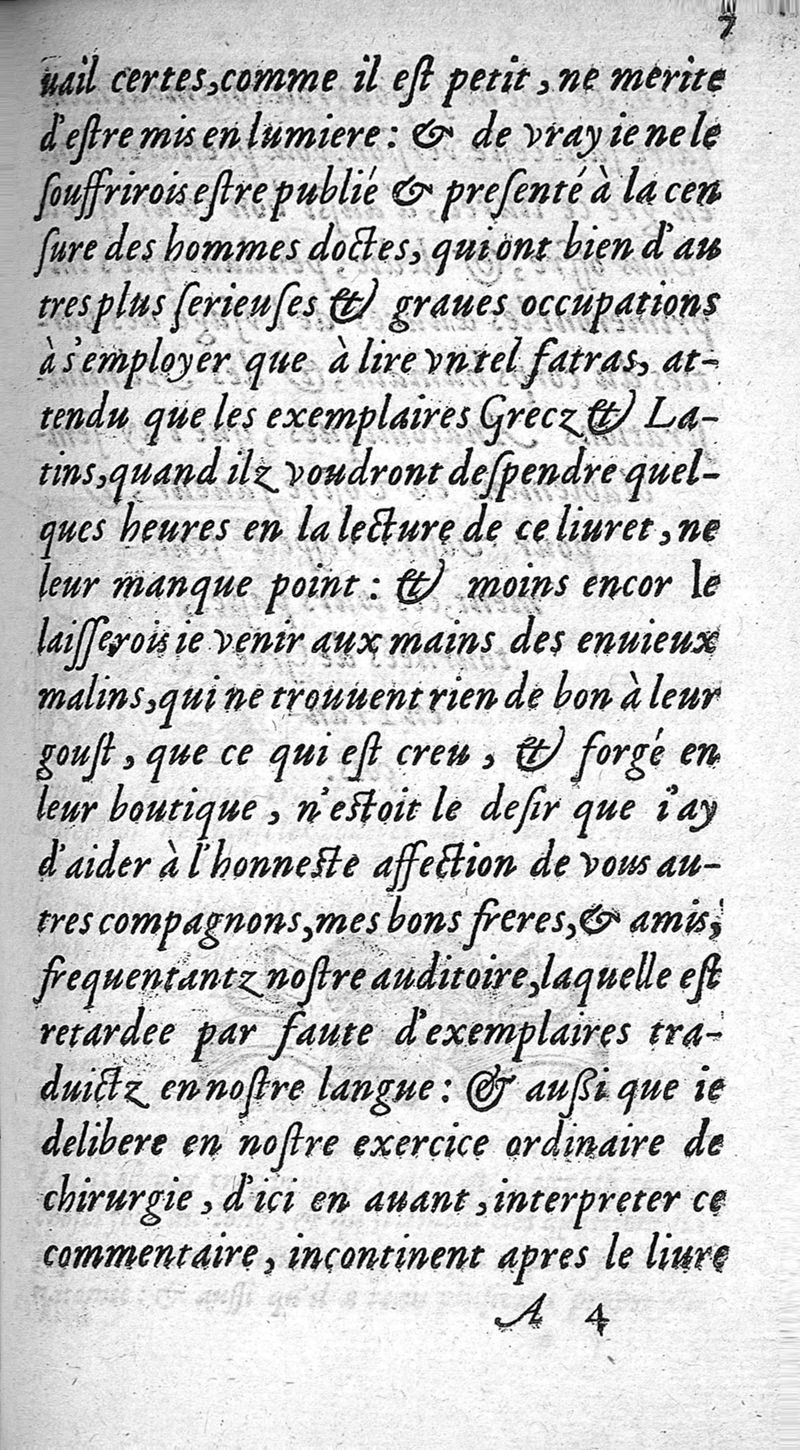 7
uail certes, comme il eſt petit, ne merite
d'eſtre mis en lumiere: & de vray ie ne le
ſouffrirois eſtre publié & preſenté à la cen
ſure des hommes doctes, qui ont bien d'au
tres plus ſerieuſes & graues occupations
à s'employer que à lire vn tel fatras, at-
tendu que les exemplaires Grecz & La-
tins, quand ilz voudront deſpendre quel-
ques heures en la lecture de ce liuret, ne
leur manque point: & moins encor le
laiſſerois ie venir aux mains des enuieux
malins, qui ne trouuent rien de bon à leur
gouſt, que ce qui eſt creu, & forgé en
leur boutique, n'eſtoit le deſir que i'ay
d'aider à l'honneſte affection de vous au-
tres compagnons, mes bons freres, & amis,
frequentantz noſtre auditoire, laquelle eſt
retardee par faute d'exemplaires tra-
duictz en noſtre langue: & außi que ie
delibere en noſtre exercice ordinaire de
chirurgie, d'ici en auant, interpreter ce
commentaire, incontinent apres le liure
A 4